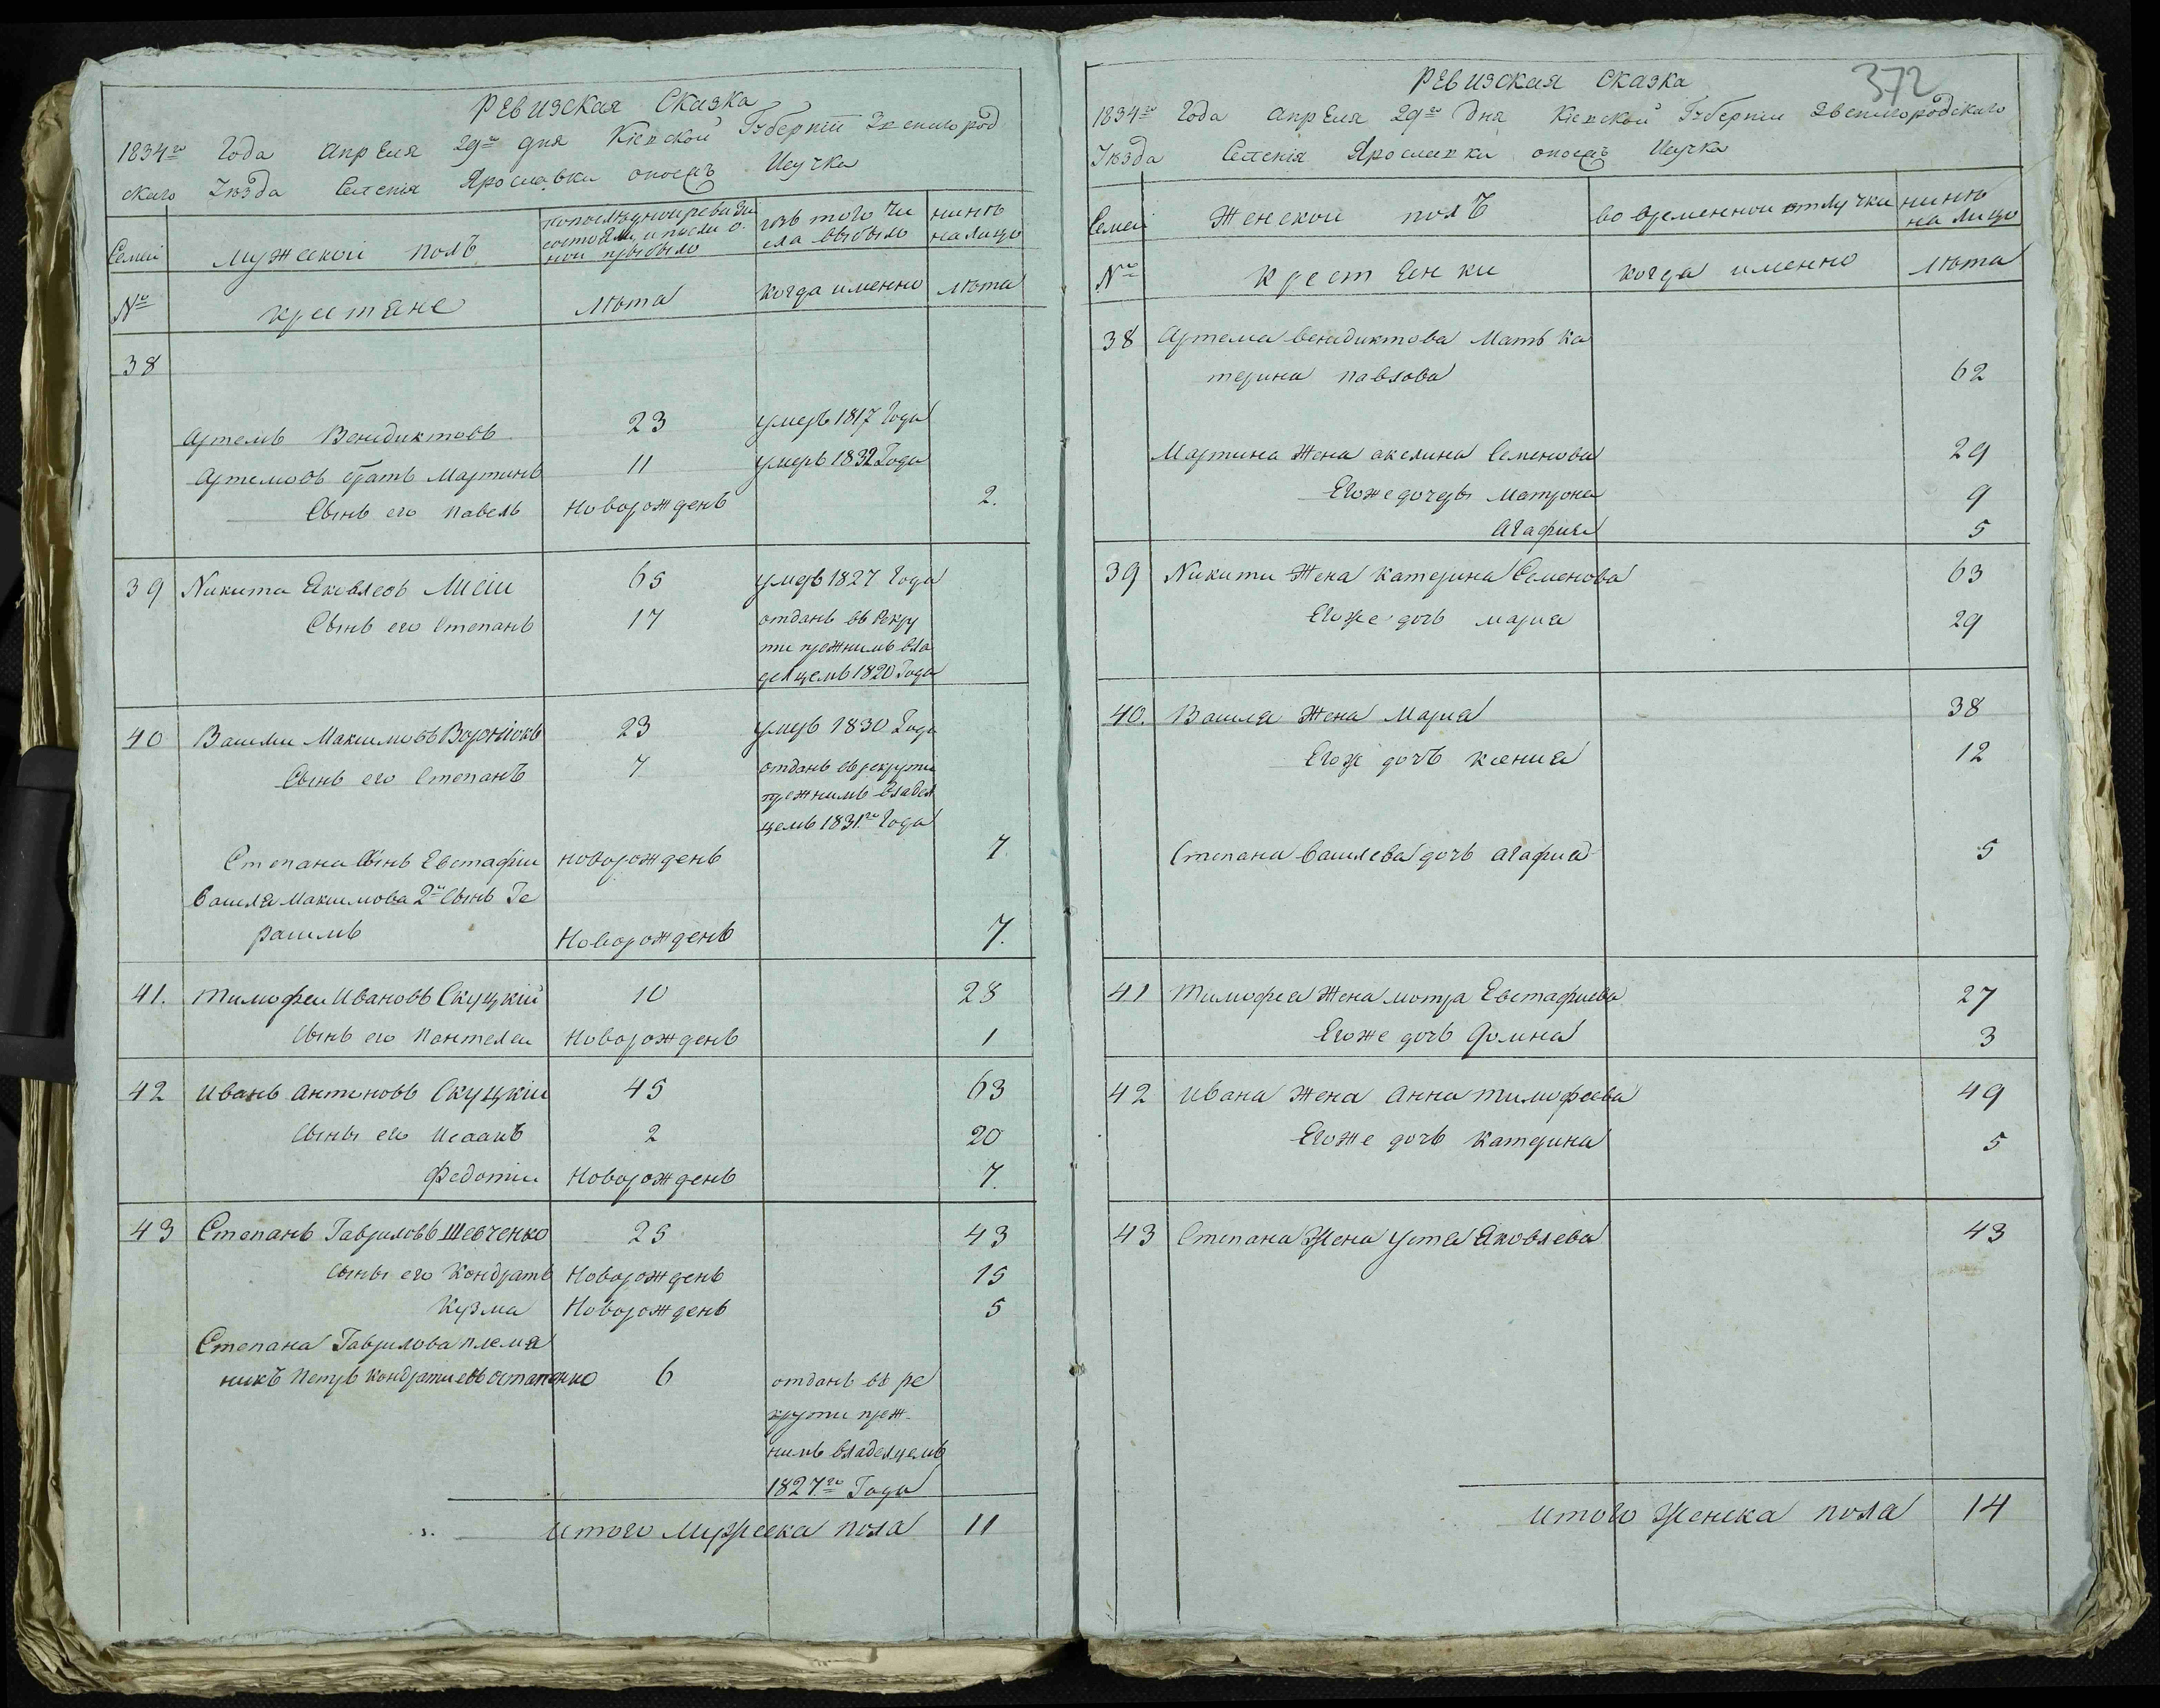 РЕВИЗСКАЯ СКАЗКА
1834го Года Апреля 29го дня Кіевской Губерніи Звенигород
скаго Уѣзда Селенія Ярославки
Семеи Мужеской полъ по последной ревизіи состояло и после оной прибыло изъ того числа выбыло нинѣ на лицо
№ крестяне Лѣта когда именно Лѣта
38
Артемъ Венедиктовъ 23 умеръ 1817 Года
Артемовъ братъ Мартинъ 11 умеръ 1832 Года
Сынъ его Павелъ Новорожденъ 2.
39 Никита Яковлевъ Лисіи 65 умеръ 1827 Года
Сынъ его Степанъ 17 отданъ въ рекру
ти прежнимъ вла
делцемъ 1820 Года
40 Василіи Максимовъ 23 умеръ 1830 Года
Сынъ его Степанъ 7 отданъ в рекрути
прежнимъ владел
цемъ 1831го Года
Степана Сынъ Евстафіи новорожденъ 7
Василя Максимова 2й Сынъ Ге
расимъ Новорожденъ 7.
41. Тимофеи Ивановъ Скуцкій 10 28
Сынъ его Пантелеи Новорожденъ 1
42 Иванъ Антоновъ Скуцкіи 45 63
Сыны его Исаакъ 2 20
Федотіи Новорожденъ 7.
43 Степанъ Гавриловъ Шевченко 25 43
Сыны его Кондратъ Новорожденъ 15
Кузма Новорожденъ 5
Степана Гаврилова племя
никъ Петръ Кондратиевъ Остапенко 6 отданъ въ ре
крути преж
нимъ владелцемъ
1827го Года
Итого Мужеска пола 11
372
РЕВИЗСКАЯ СКАЗКА
1834го Года Апреля 29го Дня Кіевской Губерніи Звенигородскаго
Уѣзда Селенія Ярославки
Семеи Женскои полъ во временнои отлучки нинѣ на лицо
№ крестянки когда именно Лѣта
38 Артема Венедиктова Мать Ка
терина Павлова 62
Мартина Жена Акелина Семенова 29
Егоже дочеры Матрона 9
Агафия 5
39 Никити Жена Катерина Семенова 63
Егоже дочь мария 29
40. Василя Жена Мария 38
Егож дочъ Ксения 12
Степана Василева дочь Агафия 5
41 Тимофея Жена мотра Евстафиева 27
Егоже дочь Домна 3
42 Ивана Жена Анна Тимофеева 49
Егоже дочь Катерина 5
43 Степана Жена Устя Яковлева 43
Итого Женска пола 14